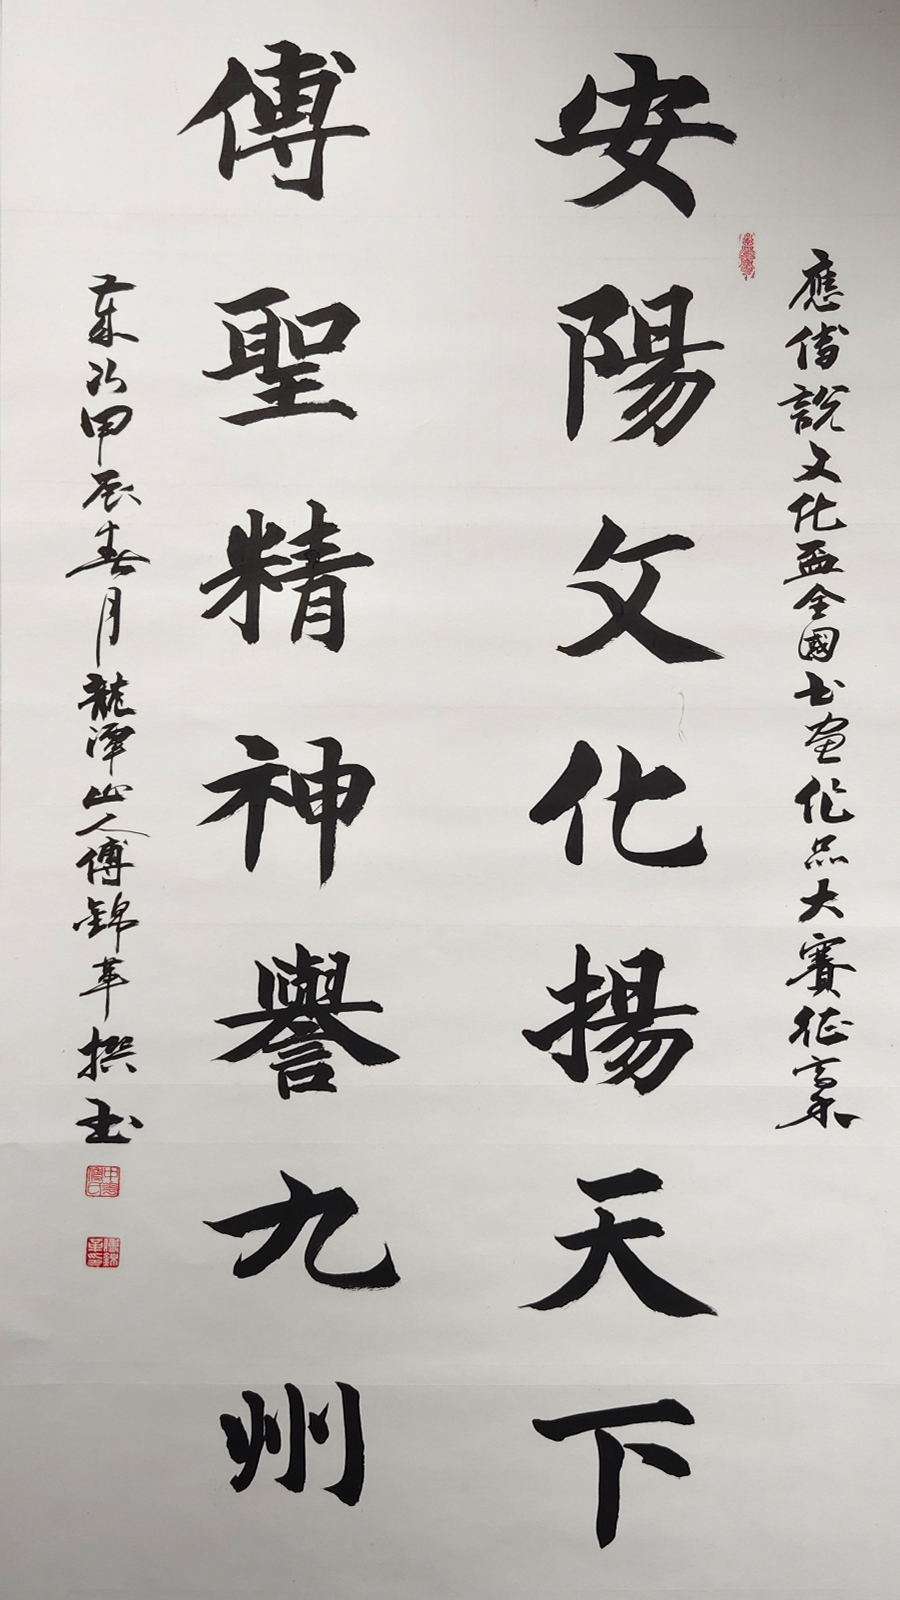 應傅說文化盃全國书画作品大賽征稾
安陽文化揚天下
傅聖精神譽九州
歲次甲辰春月龍潭山人傅錦革撰书